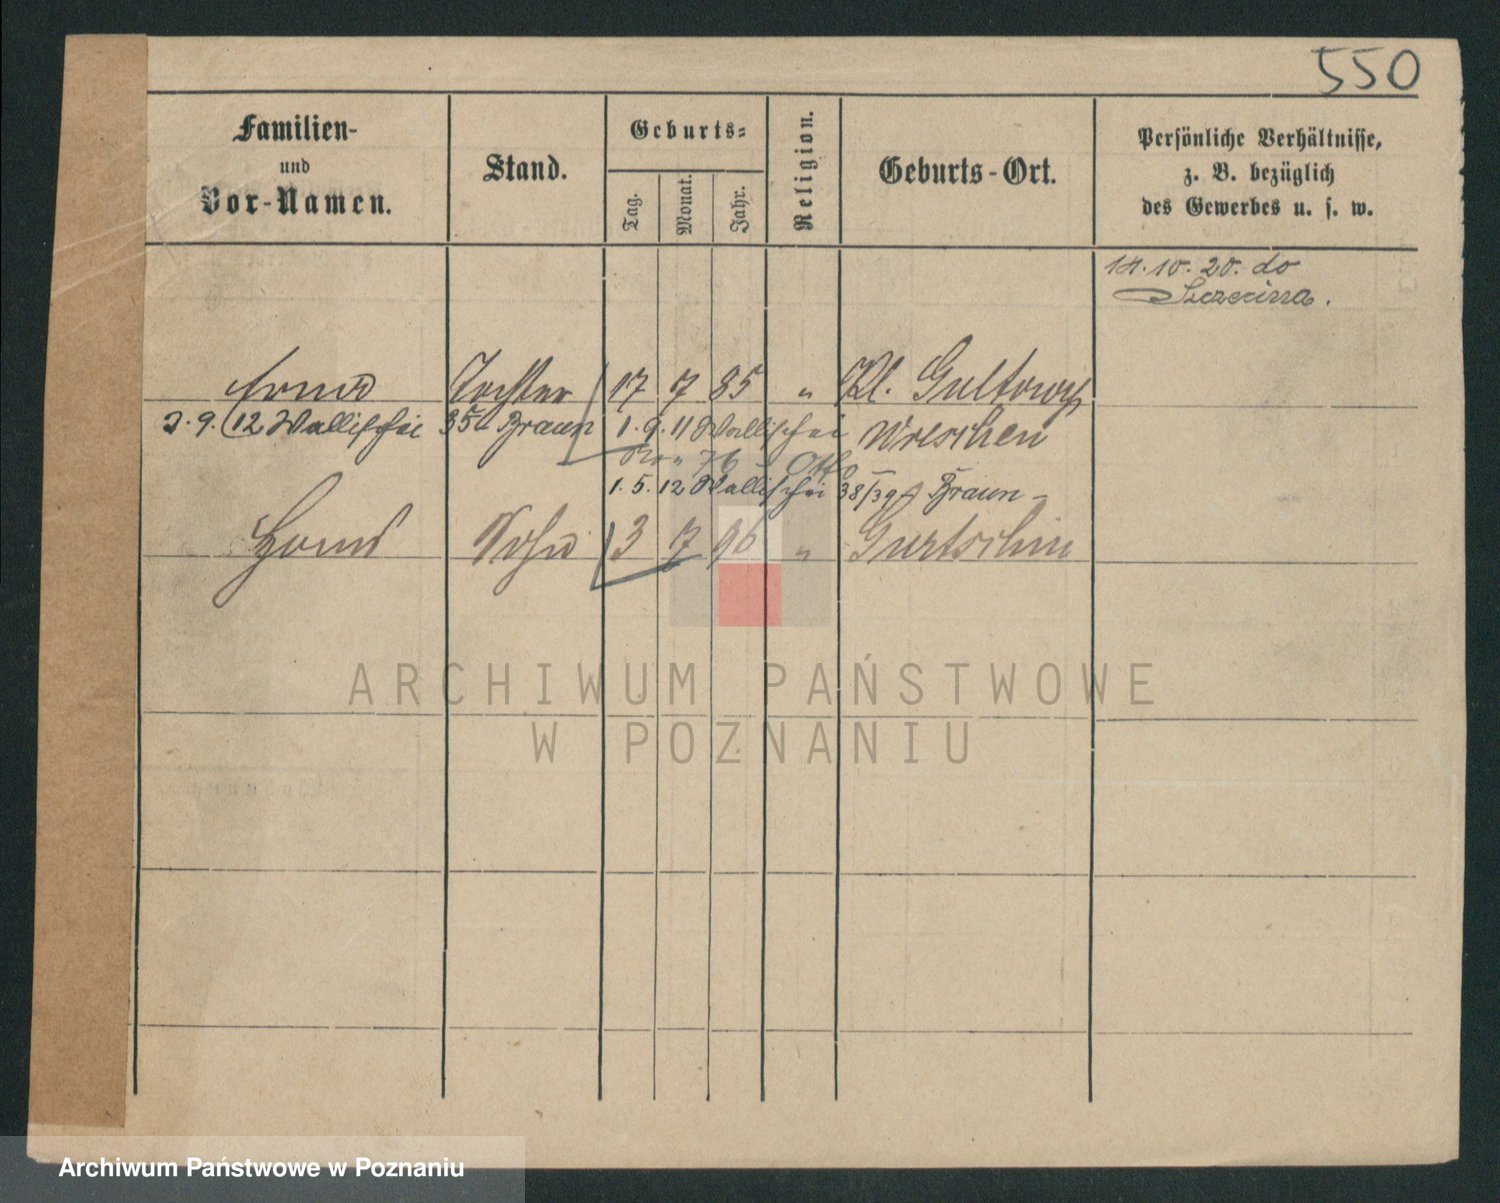 550
Familien-
und
Vor-Namen.
Stand.
Geburts-
Tag.
Monat.
Jahr.
Religion.
Geburts-Ort.
Persönliche Verhältnisse,
z. B. bezüglich
des Gewerbes u. s. w.
14. 10. 20. do
Szczecina.
Erna Tochter 17 7 85 " Kl. Gultowy
2. 9. 12 Wallischei 35a Braun 1. 9. 11 Wallischei Wreschen
76 Otto
1. 5. 12 Wallischei 38/39 Braun
Hans Sohn 3 7 96 " Gurtschin
ARCHIWUM PAŃSTWOWE
W POZNANIU
Archiwum Państwowe w Poznaniu